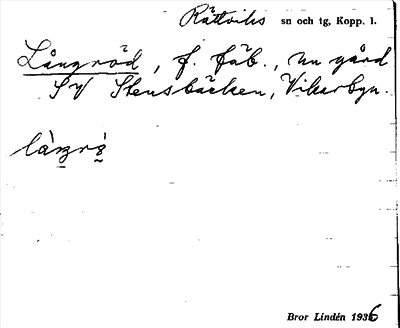 Rättviks sn och tg, Kopp. l.
Långröd, f. fäb., nu gård
SV Stensbäcken, Vikarbyn.
làŋrò̤
Bror Lindén 1936